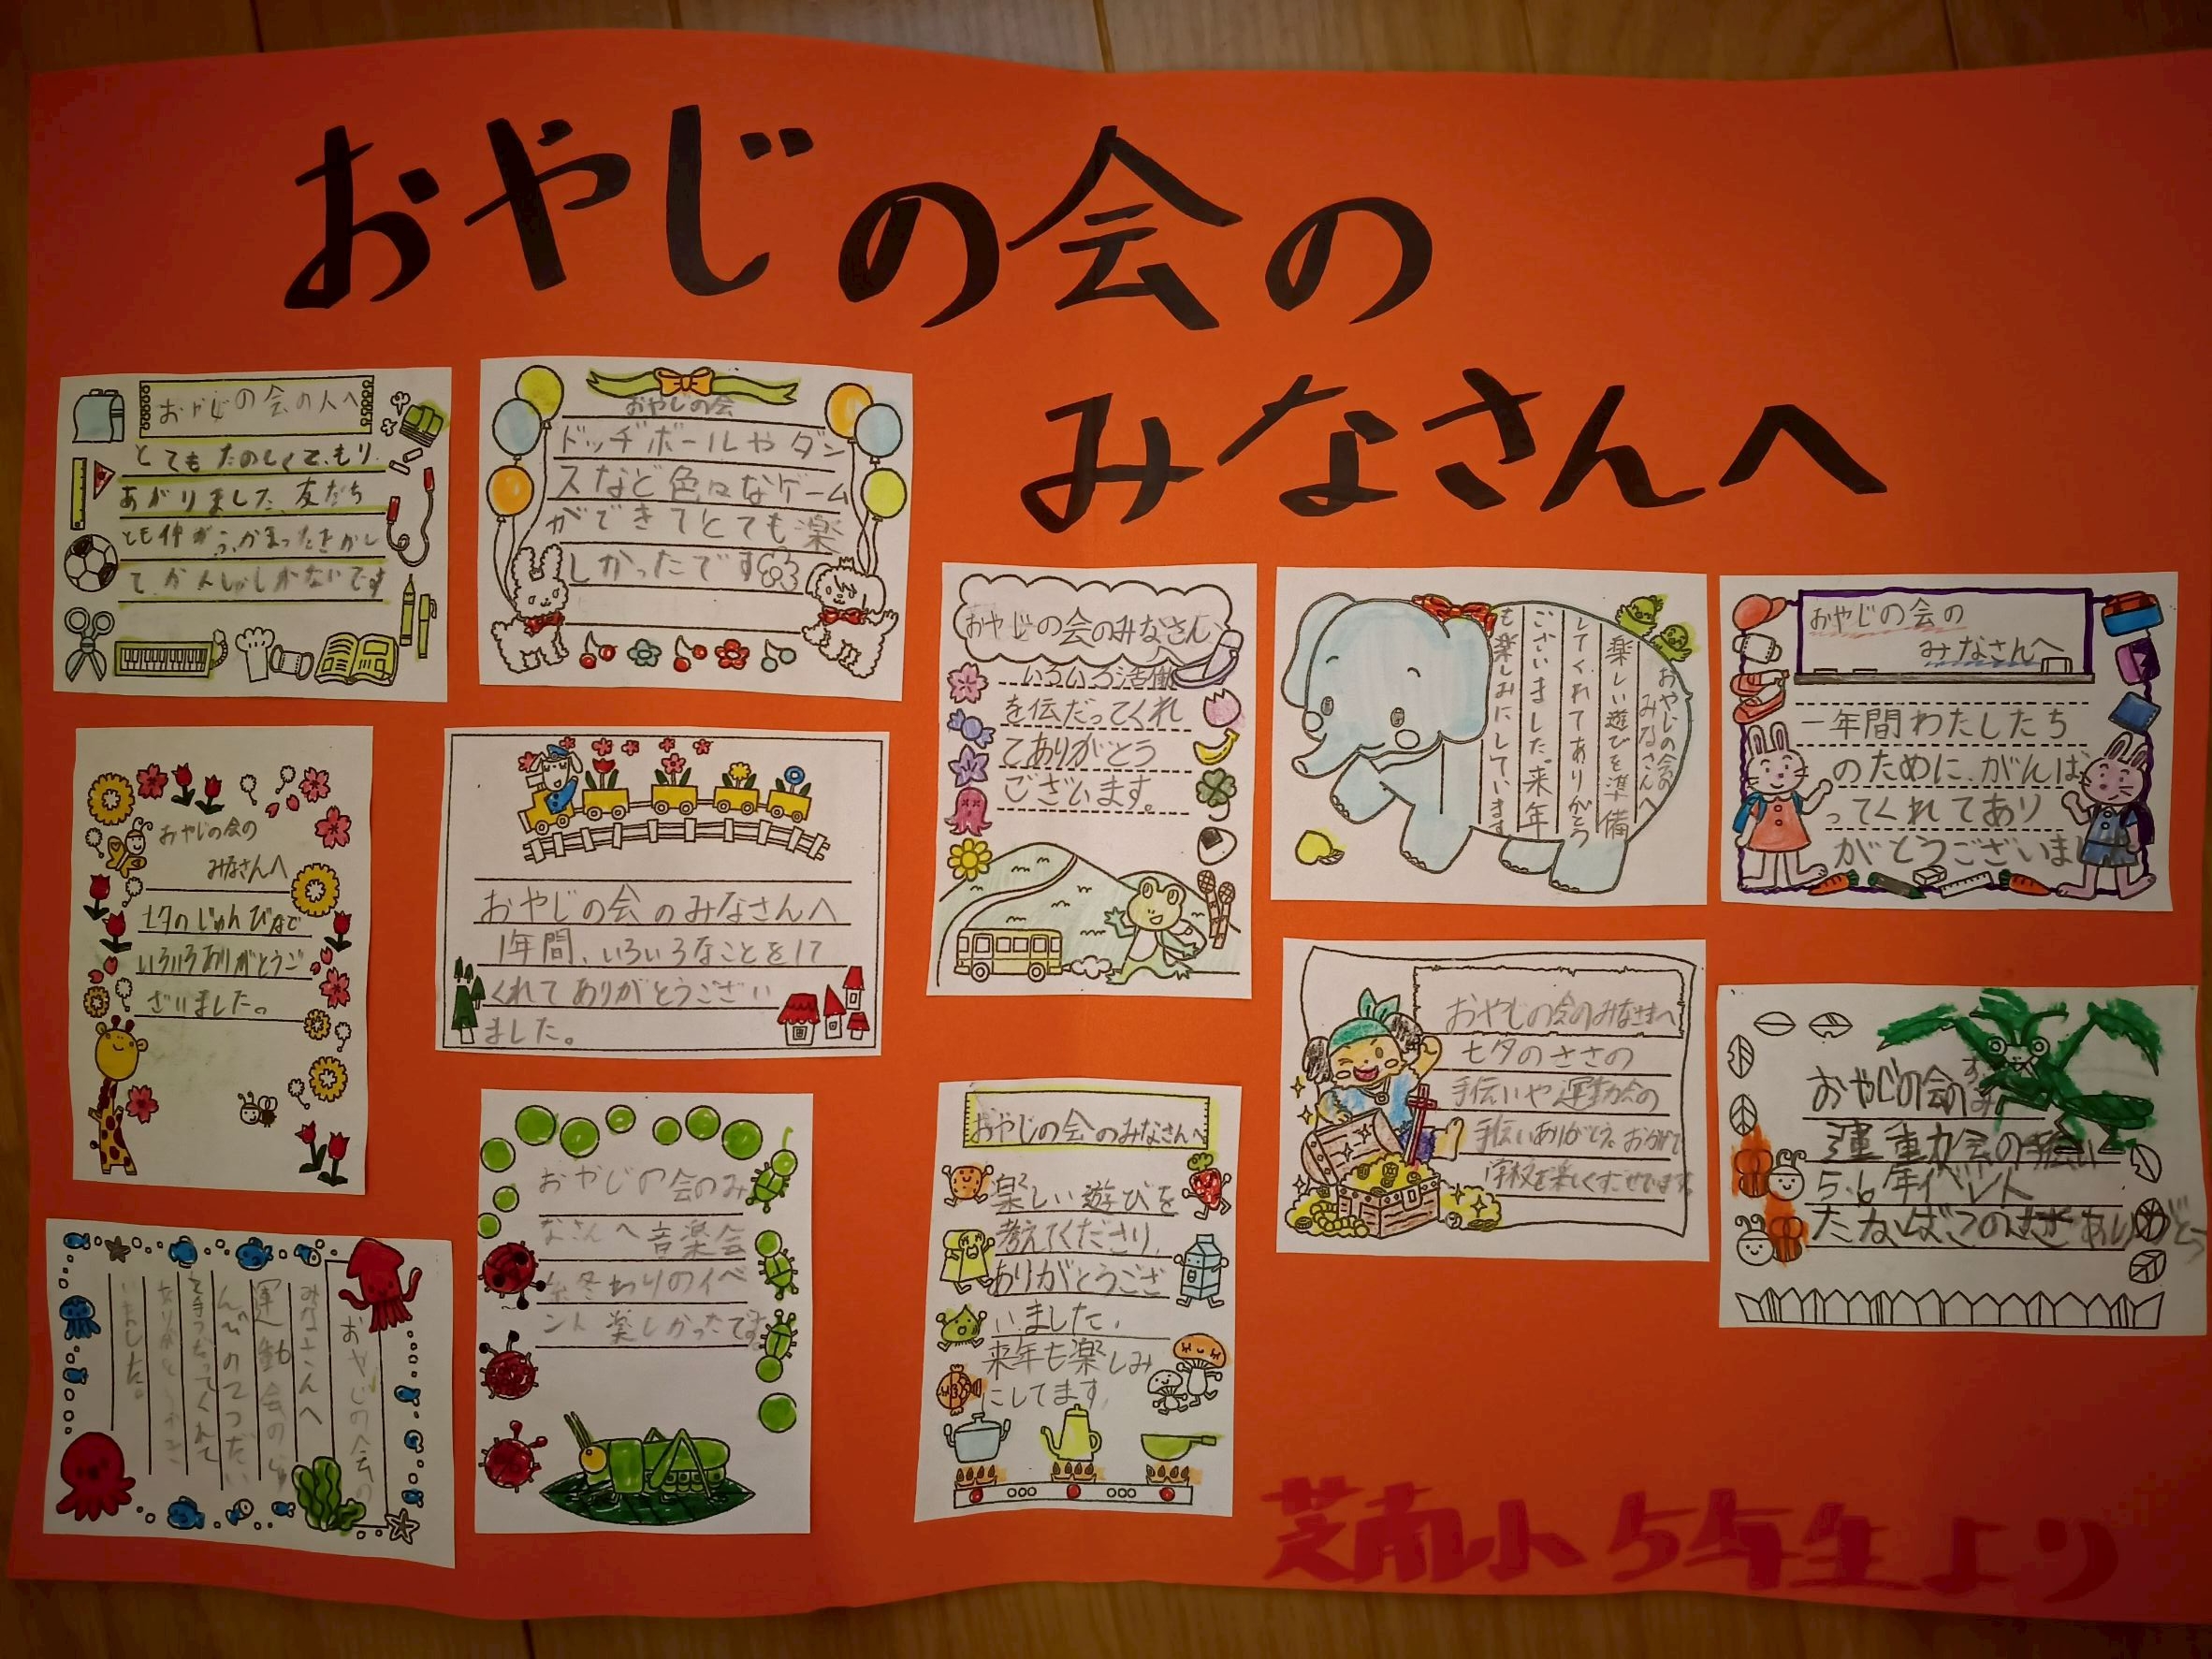 おやじの会の
みなさんへ
おやじの会の人へ
とてもたのしくて、もり
あがりました、友だち
とも仲がふかまったきがし
て、かんしゃしかないです
おやじの会
ドッヂボールやダン
スなど色々なゲーム
ができてとても楽
しかったです
おやじの会のみなさんへ
いろいろ活働
を伝だってくれ
てありがとう
ございます。
おやじの会の
みなさんへ
楽しい遊びを準備
してくれてありがとう
ございました。来年
も楽しみにしています
おやじの会の
みなさんへ
一年間わたしたち
のために、がんば
ってくれてあり
がとうございまし
おやじの会の
みなさんへ
七夕のじゅんびなど
いろいろありがとうご
ざいました。
おやじの会のみなさんへ
1年間、いろいろなことをして
くれてありがとうござい
ました。
おやじの会のみなさまへ
七夕のささの
手伝いや運動会の
手伝いありがとう。おかげで
学校を楽しくすごせています。
おやじの会のみ
運動会の手伝い
5.6年イベント
たなばたのささありがとう
おやじの会の
みなさんへ
運動会のじゅ
んびのてつだい
を手つだってくれて
ありがとうござ
いました。
おやじの会のみ
なさんへ音楽会
終わりのイベ
ント楽しかったです
おやじの会のみなさんへ
楽しい遊びを
考えてくださり、
ありがとうござ
いました。
来年も楽しみ
にしてます。
芝南小5年生より